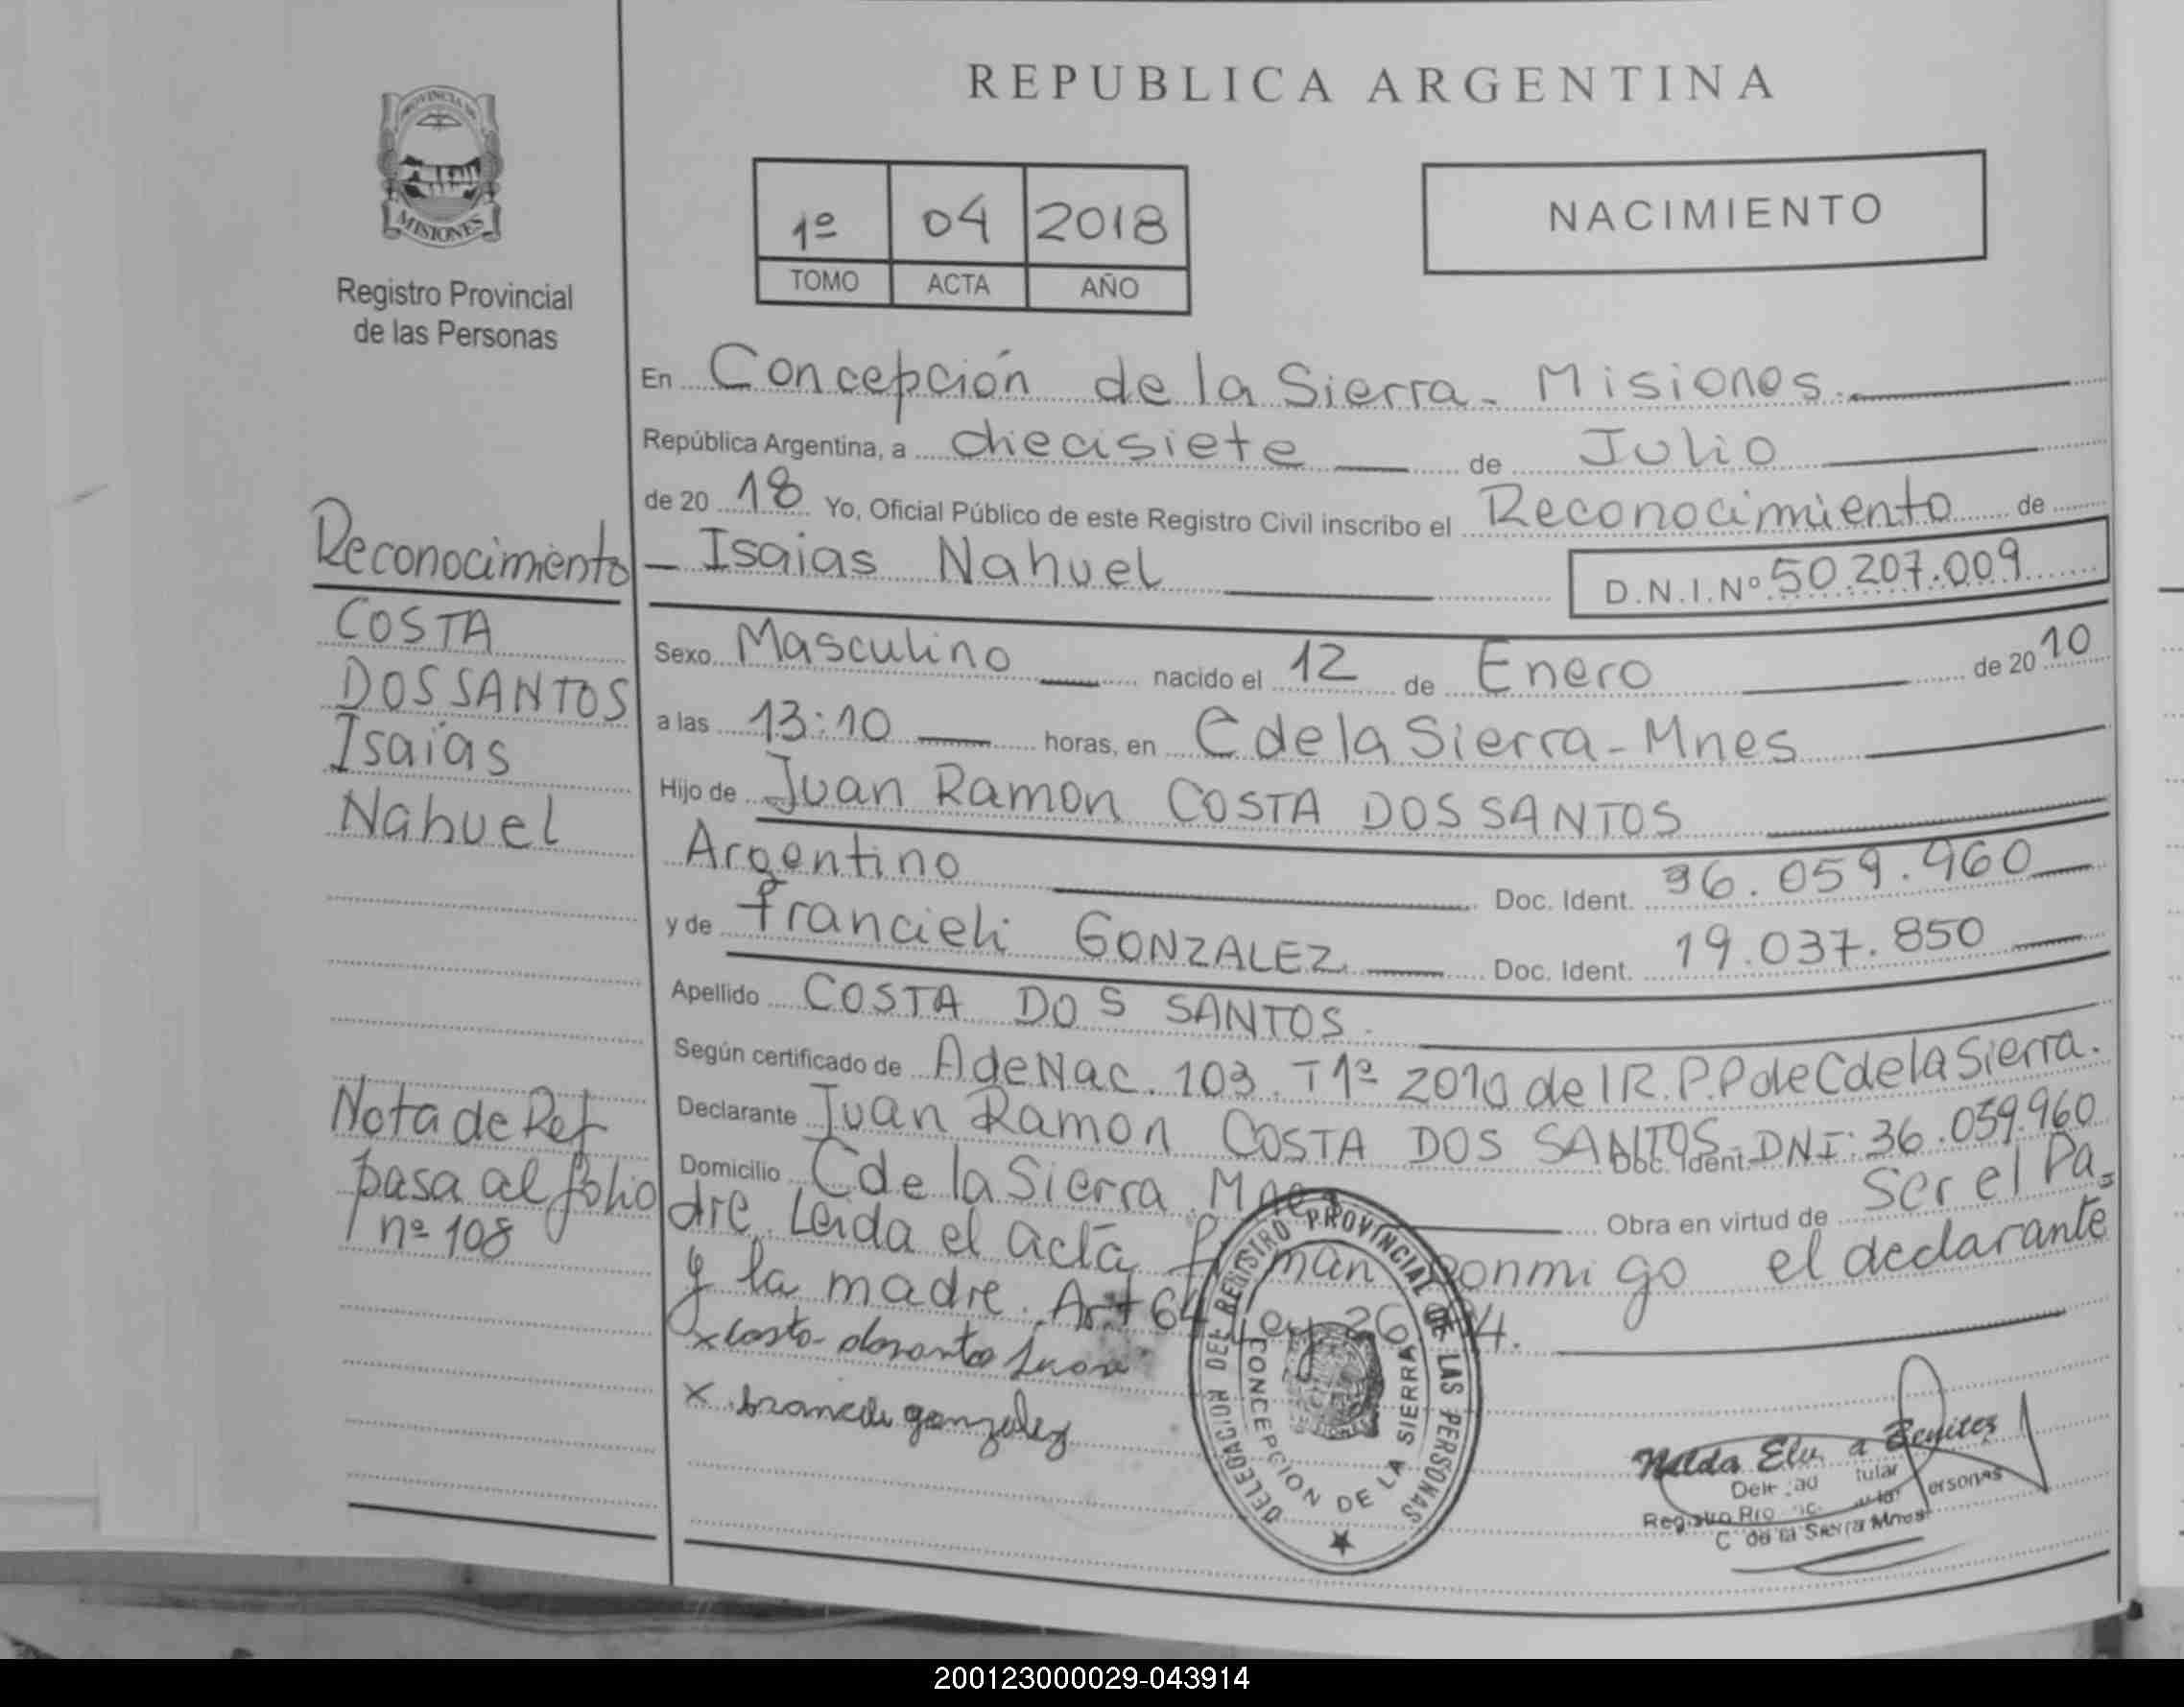 REPUBLICA ARGENTINA
PROVINCIA DE
MISIONES
Registro Provincial
de las Personas
1º 04 2018
TOMO ACTA AÑO
NACIMIENTO
En Concepción de la Sierra - Misiones.
República Argentina, a diecisiete de Julio
de 20 18 Yo, Oficial Público de este Registro Civil inscribo el Reconocimiento de
Isaias Nahuel D.N.I.Nº 50.207.009
Sexo Masculino nacido el 12 de Enero de 20 10
a las 13:10 horas, en C de la Sierra - Mnes
Hijo de Juan Ramon COSTA DOS SANTOS
Argentino Doc. Ident. 36.059.960
y de Francieli GONZALEZ. Doc. Ident. 19.037.850
Apellido COSTA DOS SANTOS.
Según certificado de A de Nac. 103. T 1º 2010 del R.P.P de C de la Sierra.
Declarante Juan Ramon COSTA DOS SANTOS - Doc. Ident. DNI: 36.059.960
Domicilio C de la Sierra Mnes Obra en virtud de Ser el Pa-
dre. Leida el acta firman conmigo el declarante
y la madre. Art 64 Ley
Reconocimiento
COSTA
DOS SANTOS
Isaías
Nahuel
Nota de Ref
pasa al folio
nº 108
x costa dosantos Juan
x gonzalez
DELEGACION DEL REGISTRO PROVINCIAL DE LAS PERSONAS
CONCEPCION DE LA SIERRA
Benitez
C de la Sierra Mnes
200123000029-043914